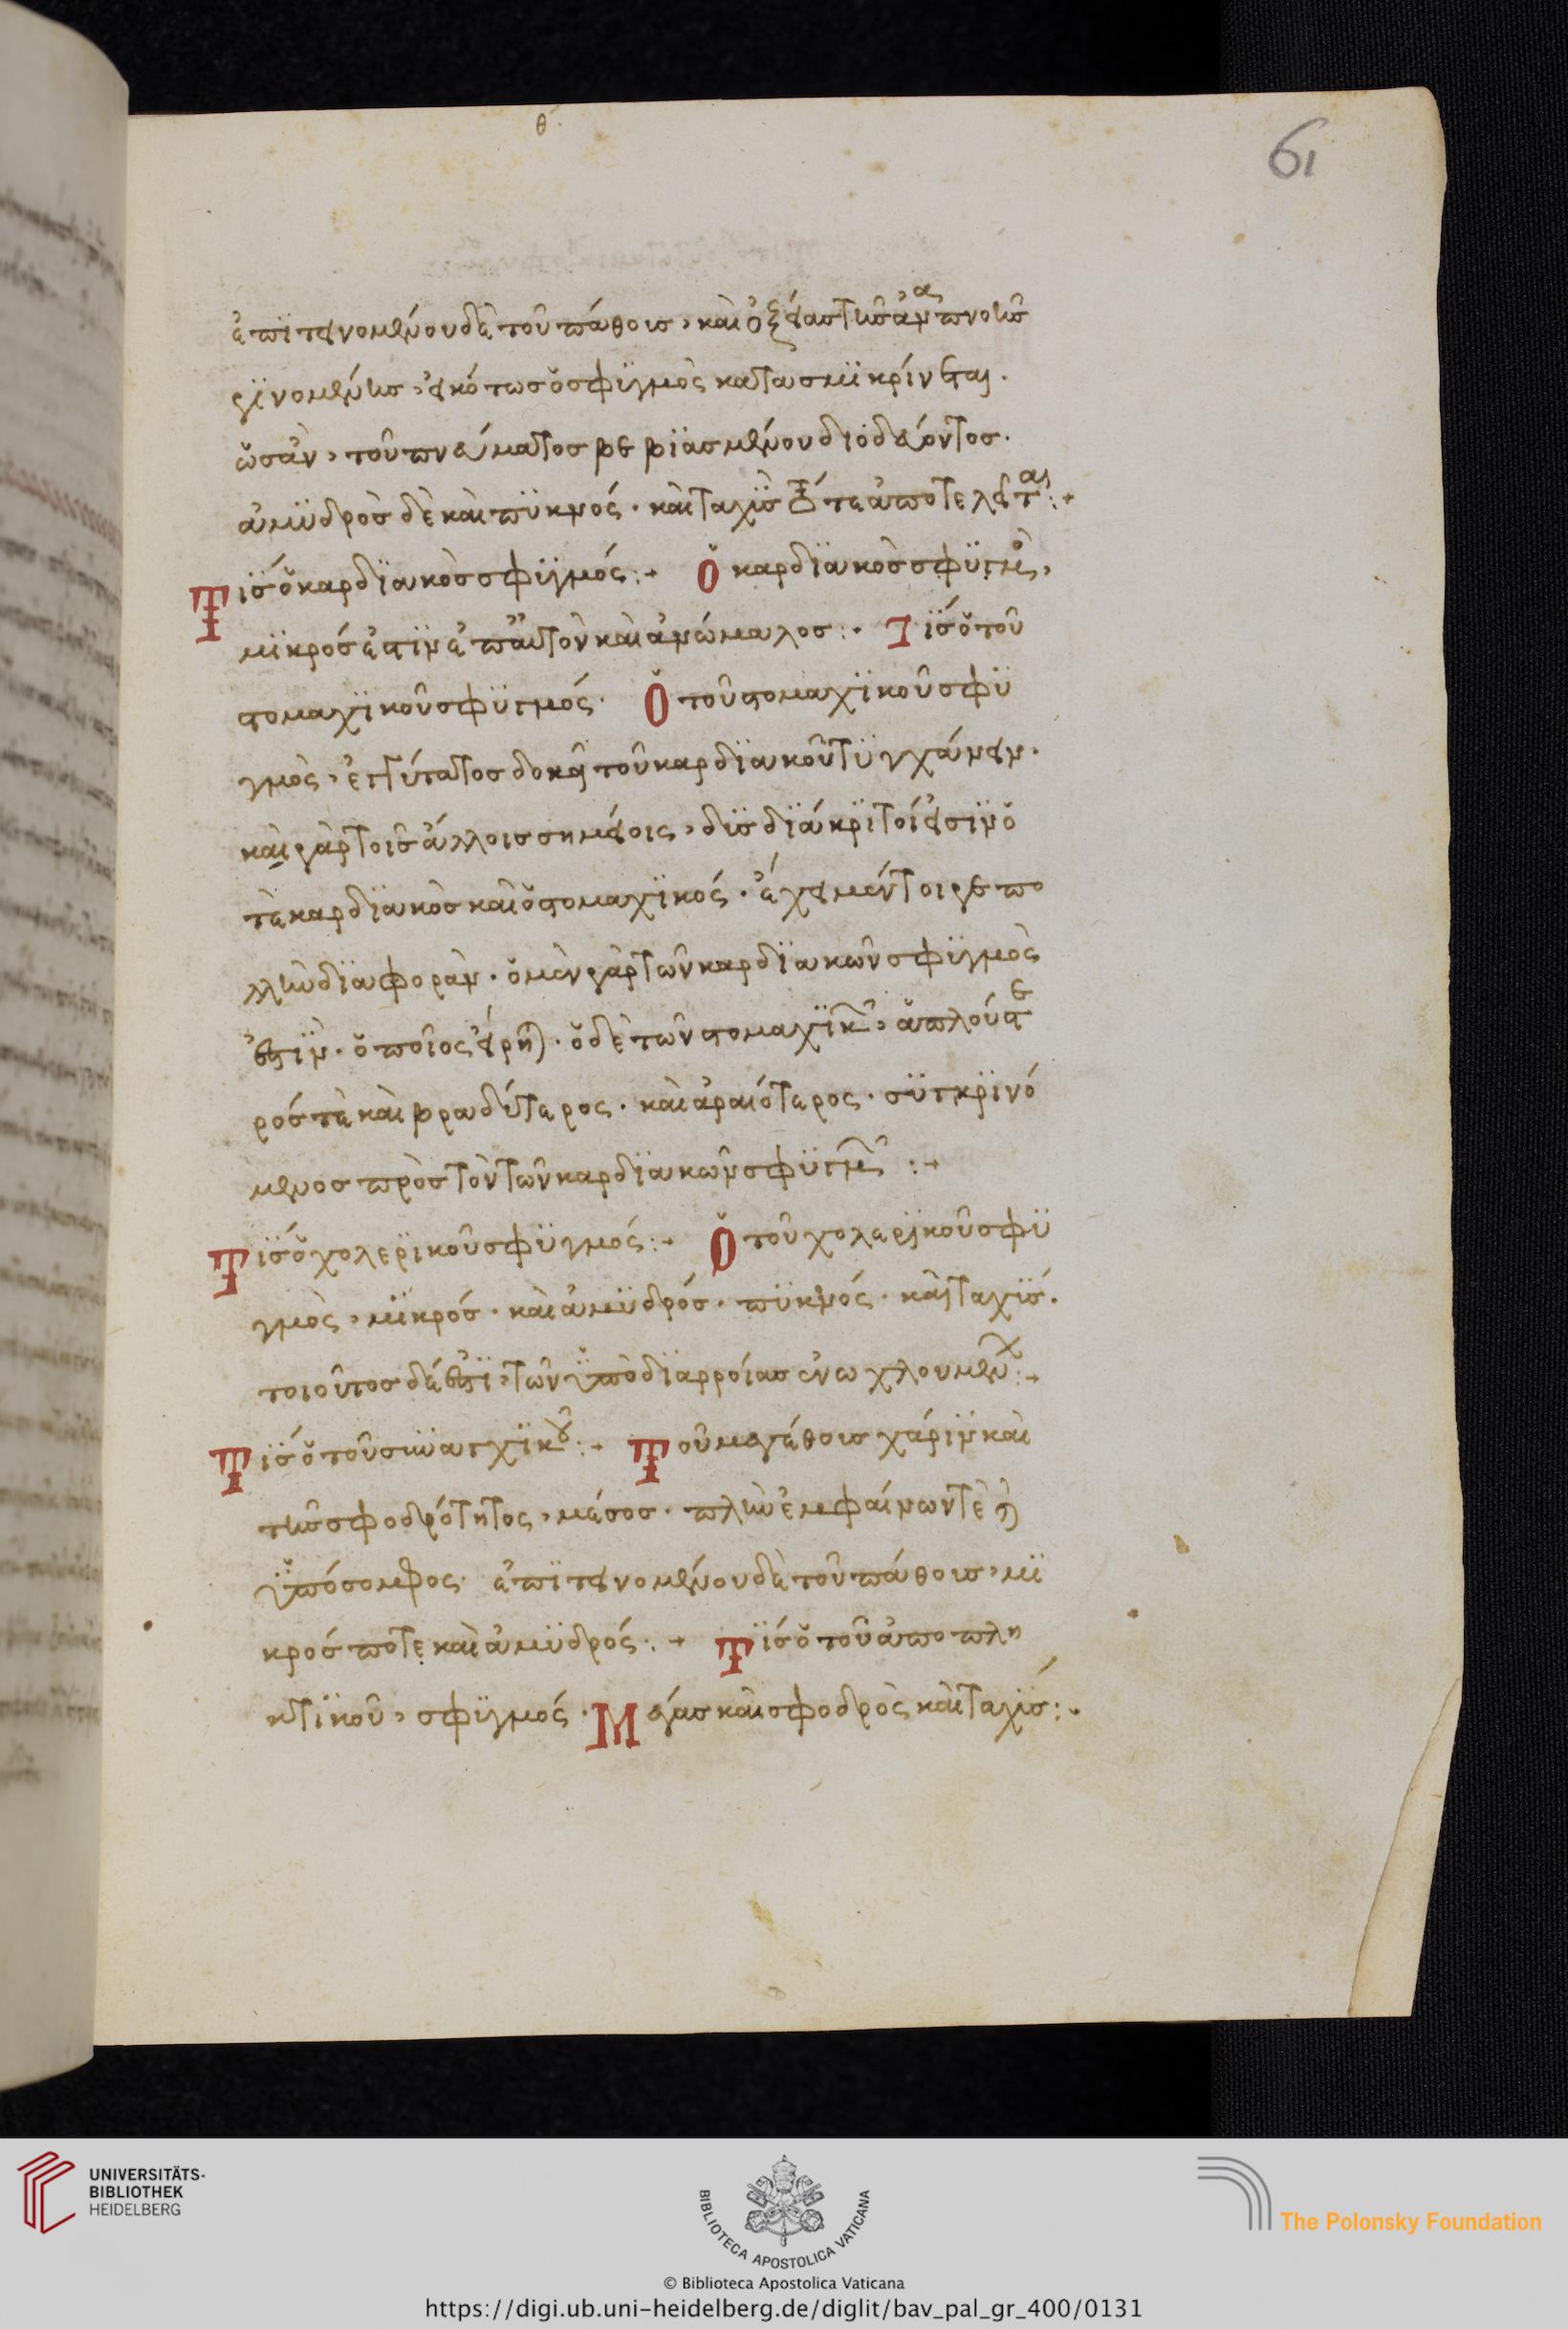 θ
61
ἐπιτεινομένου δὲ τοῦ πάθους, καὶ ὀξείας τῆς ἀναπνοῆς
γινομένης, εἰκότως ὁ σφυγμὸς κατασμικρίνεται.
ὡσὰν, τοῦ πνεύματος βεβιασμένου διοδεύοντος.
ἀμυδρὸς δὲ καὶ πυκνός. καὶ ταχὺς τότε ἀποτελεῖται:
Τίς ὁ καρδιακὸς σφυγμός: Ὁ καρδιακὸς σφυγμὸς,
μικρός ἐστιν ἐπαυτὸν καὶ ἀνώμαλος: Τίς ὁ τοῦ
στομαχικοῦ σφυγμός. Ὁ τοῦ στομαχικοῦ σφυ
γμὸς, ἐγγύτατος δοκεῖ τοῦ καρδιακοῦ τυγχάνειν.
καὶ γὰρ τοῖς ἄλλοις σημείοις, δυσδιάκριτοί εἰσιν ὅ
τε καρδιακὸς καὶ ὁ στομαχικός. ἔχει μέντοιγε πο
λλὴν διαφοράν. ὁ μὲν γὰρ τῶν καρδιακῶν σφυγμὸς
ἐστιν. ὁποῖος εἴρηται. ὁ δὲ τῶν στομαχικῶν, ἁπλούστε
ρός τε καὶ βραδύτερος. καὶ ἀραιότερος. συγκρινό
μενος πρὸς τὸν τῶν καρδιακῶν σφυγμῶν:
Τίς ὁ χολερικοῦ σφυγμός: Ὁ τοῦ χολερικοῦ σφυ
γμὸς, μικρός. καὶ ἀμυδρός. πυκνός. καὶ ταχύς.
τοιοῦτος δέ ἐστι, τῶν ὑπὸ διαρροίας ἐνωχλουμένων:
Τίς ὁ τοῦ συναγχικοῦ: Τοῦ μεγέθους χάριν καὶ
τῆς σφοδρότητος, μέσος. πλὴν ἐμφαίνων τὲ καὶ
ὑπόσομφος. ἐπιτεινομένου δὲ τοῦ πάθους, μι
κρός ποτε καὶ ἀμυδρός: Τίς ὁ τοῦ ἀποπλη
κτικοῦ, σφυγμός. Μέγας καὶ σφοδρὸς καὶ ταχύς:
UNIVERSITÄTS-
BIBLIOTHEK
HEIDELBERG
BIBLIOTECA APOSTOLICA VATICANA
The Polonsky Foundation
© Biblioteca Apostolica Vaticana
https://digi.ub.uni-heidelberg.de/diglit/bav_pal_gr_400/0131